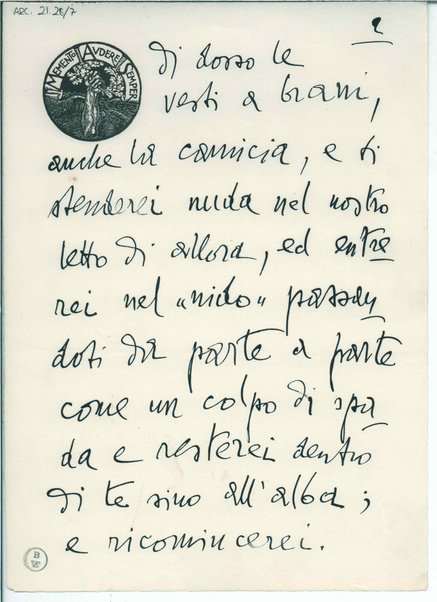 ARC. 21.28/7
2
MEMENTO AVDERE SEMPER
di dosso le
vesti a brani,
anche la camicia, e ti
stenderei nuda nel nostro
letto di allora, ed entre
rei nel "nido" passan
doti da parte a parte
come un colpo di spa
da e resterei dentro
di te sino all'alba;
e ricomincerei.